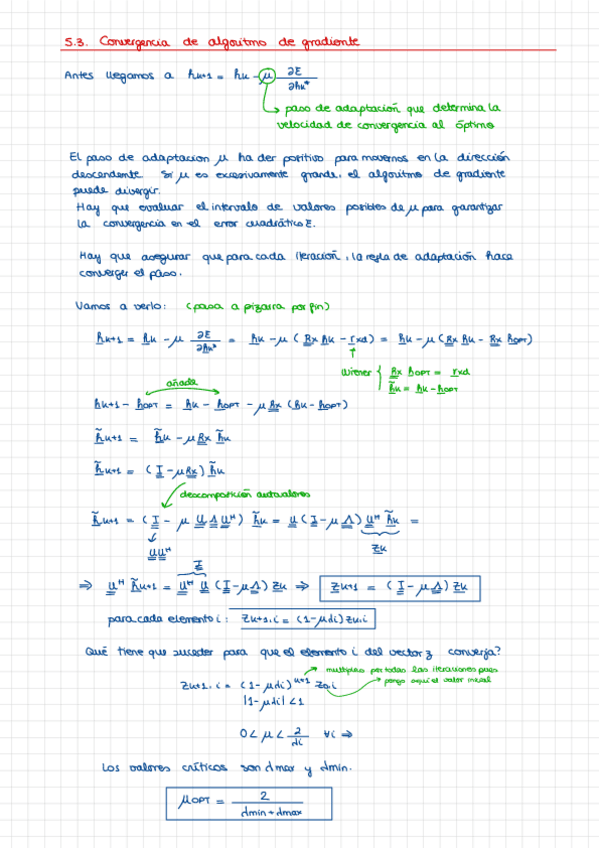 5.3. Convergencia de algoritmo de gradiente
Antes llegamos a hk+1 = hk - μ ∂E/∂hk*
paso de adaptación que determina la
velocidad de convergencia al óptimo
El paso de adaptacion μ ha der positivo para movernos en la dirección
descendente. Si μ es excesivamente grande, el algoritmo de gradiente
puede divergir.
Hay que evaluar el intervalo de valores posibles de μ para garantizar
la convergencia en el error cuadrático E.
Hay que asegurar que para cada iteración, la regla de adaptación hace
converger el paso.
Vamos a verlo: (pasa a pizarra por fin)
hk+1 = hk - μ ∂E/∂hk* = hk - μ (Rx hk - rxd) = hk - μ (Rx hk - Rx hOPT)
Wiener { Rx hOPT = rxd
h̃k = hk - hOPT
añado
hk+1 - hOPT = hk - hOPT - μ Rx (hk - hOPT)
h̃k+1 = h̃k - μ Rx h̃k
h̃k+1 = (I - μ Rx) h̃k
descomposición autovalores
h̃k+1 = (I - μ U Λ U^H) h̃k = U (I - μ Λ) U^H h̃k =
UU^H
zk
I
⇒ U^H h̃k+1 = U^H U (I - μ Λ) zk ⇒ zk+1 = (I - μ Λ) zk
para cada elemento i: zk+1,i = (1 - μdi) zk,i
Qué tiene que suceder para que el elemento i del vector z converja?
multiplico por todas las iteraciones pues
zk+1,i = (1 - μdi)^k+1 z0,i
pongo aquí el valor inicial
|1 - μdi| < 1
0 < μ < 2/di ∀i ⇒
Los valores críticos son dmax y dmin.
μOPT = 2/(dmin + dmax)